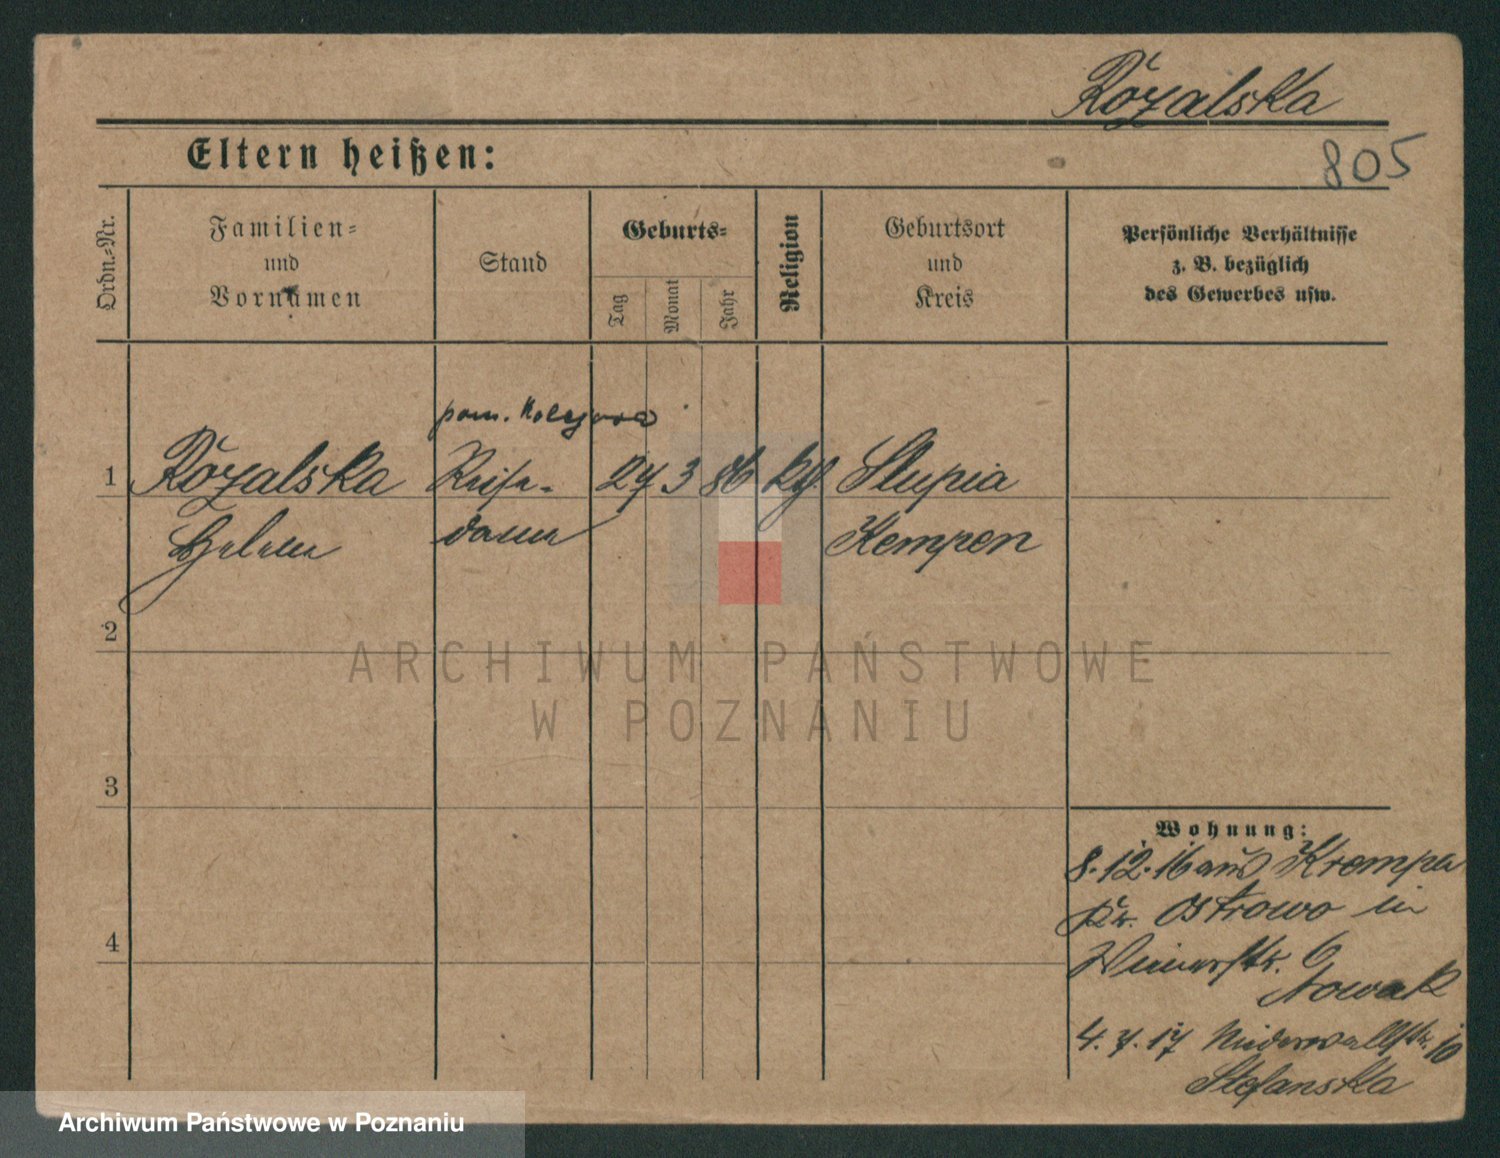 Różalska
Eltern heißen:
805
Ordn.-Nr.
Familien-
und
Vornamen
Stand
Geburts-
Tag
Monat
Jahr
Religion
Geburtsort
und
Kreis
Persönliche Verhältnisse
z. B. bezüglich
des Gewerbes usw.
pom.
1 Różalska 27 3 86 Słupia
Helena Kempen
2
3
4
ARCHIWUM PAŃSTWOWE
W POZNANIU
Wohnung:
8.12.16 aus Krempa
Kr. Ostrowo in
6
Nowak
4.7.17 Niederwallstr. 10
Stefanska
Archiwum Państwowe w Poznaniu